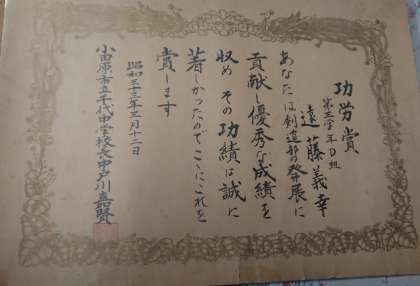 功労賞
第三学年D組
遠藤義幸
あなたは創造部の発展に
貢献し優秀な成績を
収め その功績は誠に
著しかったのでここにこれを
賞します
昭和三十三年三月十二日
小田原市立千代中学校長中戸川嘉賢